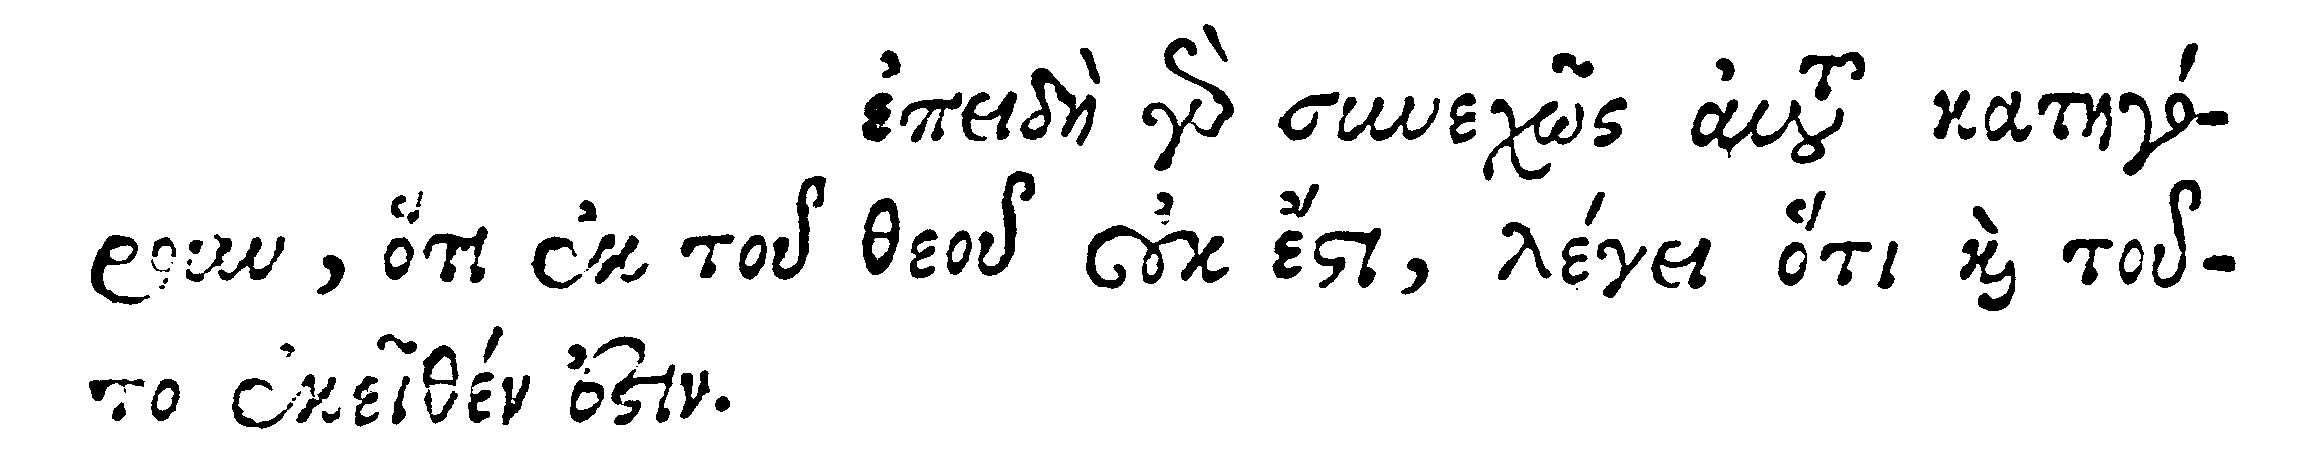 ἐπειδὴ γὰρ συνεχῶς αὐτοῦ κατηγό-
ρουν, ὅτι ἐκ τοῦ θεοῦ οὐκ ἔστι, λέγει ὅτι καὶ τοῦ-
το ἐκεῖθέν ἐστιν.